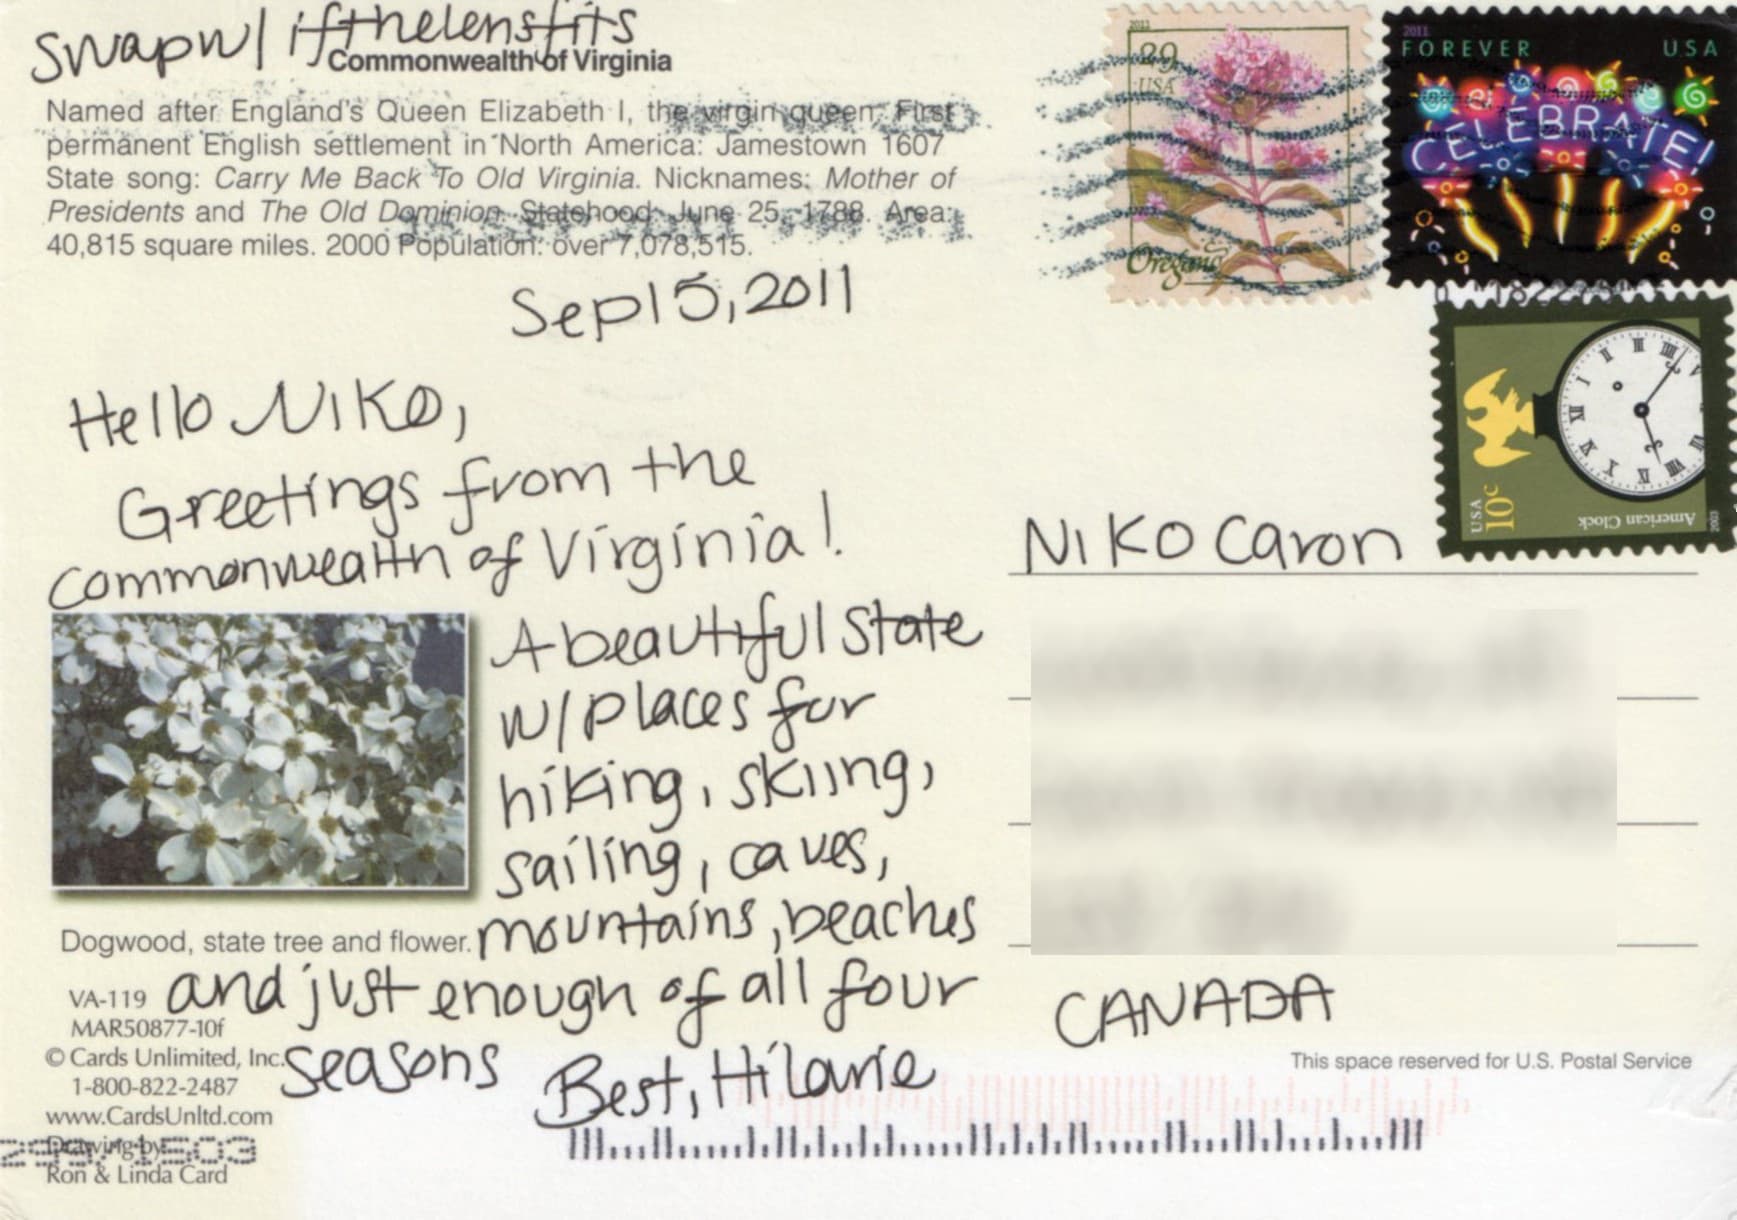 swap w/ ifthelensfits
Commonwealth of Virginia
Named after England's Queen Elizabeth I, the virgin queen. First
permanent English settlement in North America: Jamestown 1607
State song: Carry Me Back To Old Virginia. Nicknames: Mother of
Presidents and The Old Dominion. Statehood: June 25, 1788. Area:
40,815 square miles. 2000 Population: over 7,078,515.
Sep 15, 2011
Hello Niko,
Greetings from the
commonwealth of Virginia!
A beautiful state
w/ places for
hiking, skiing,
sailing, caves,
mountains, beaches
and just enough of all four
seasons
Best, Hilarie
Dogwood, state tree and flower.
VA-119
MAR50877-10f
© Cards Unlimited, Inc.
1-800-822-2487
www.CardsUnltd.com
Drawing by
Ron & Linda Card
2011
29
USA
Oregano
2011
FOREVER USA
CELEBRATE!
USA
10c
American Clock
2003
Niko Caron
CANADA
This space reserved for U.S. Postal Service